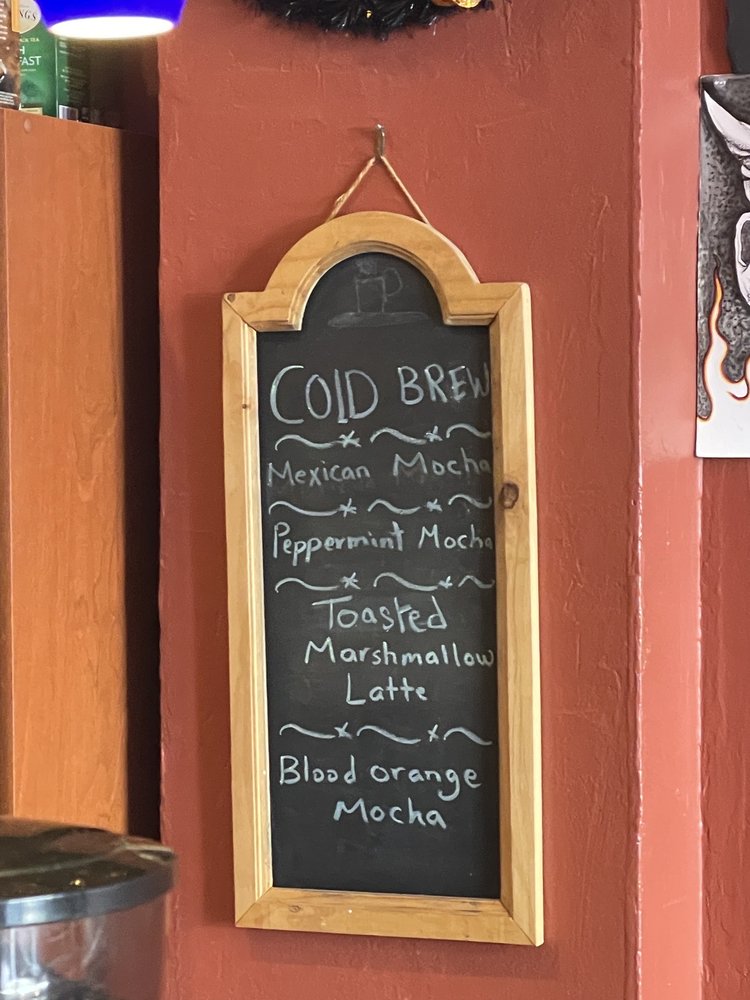 COLD BREW
Mexican Mocha
Peppermint Mocha
Toasted
Marshmallow
Latte
Blood orange
Mocha